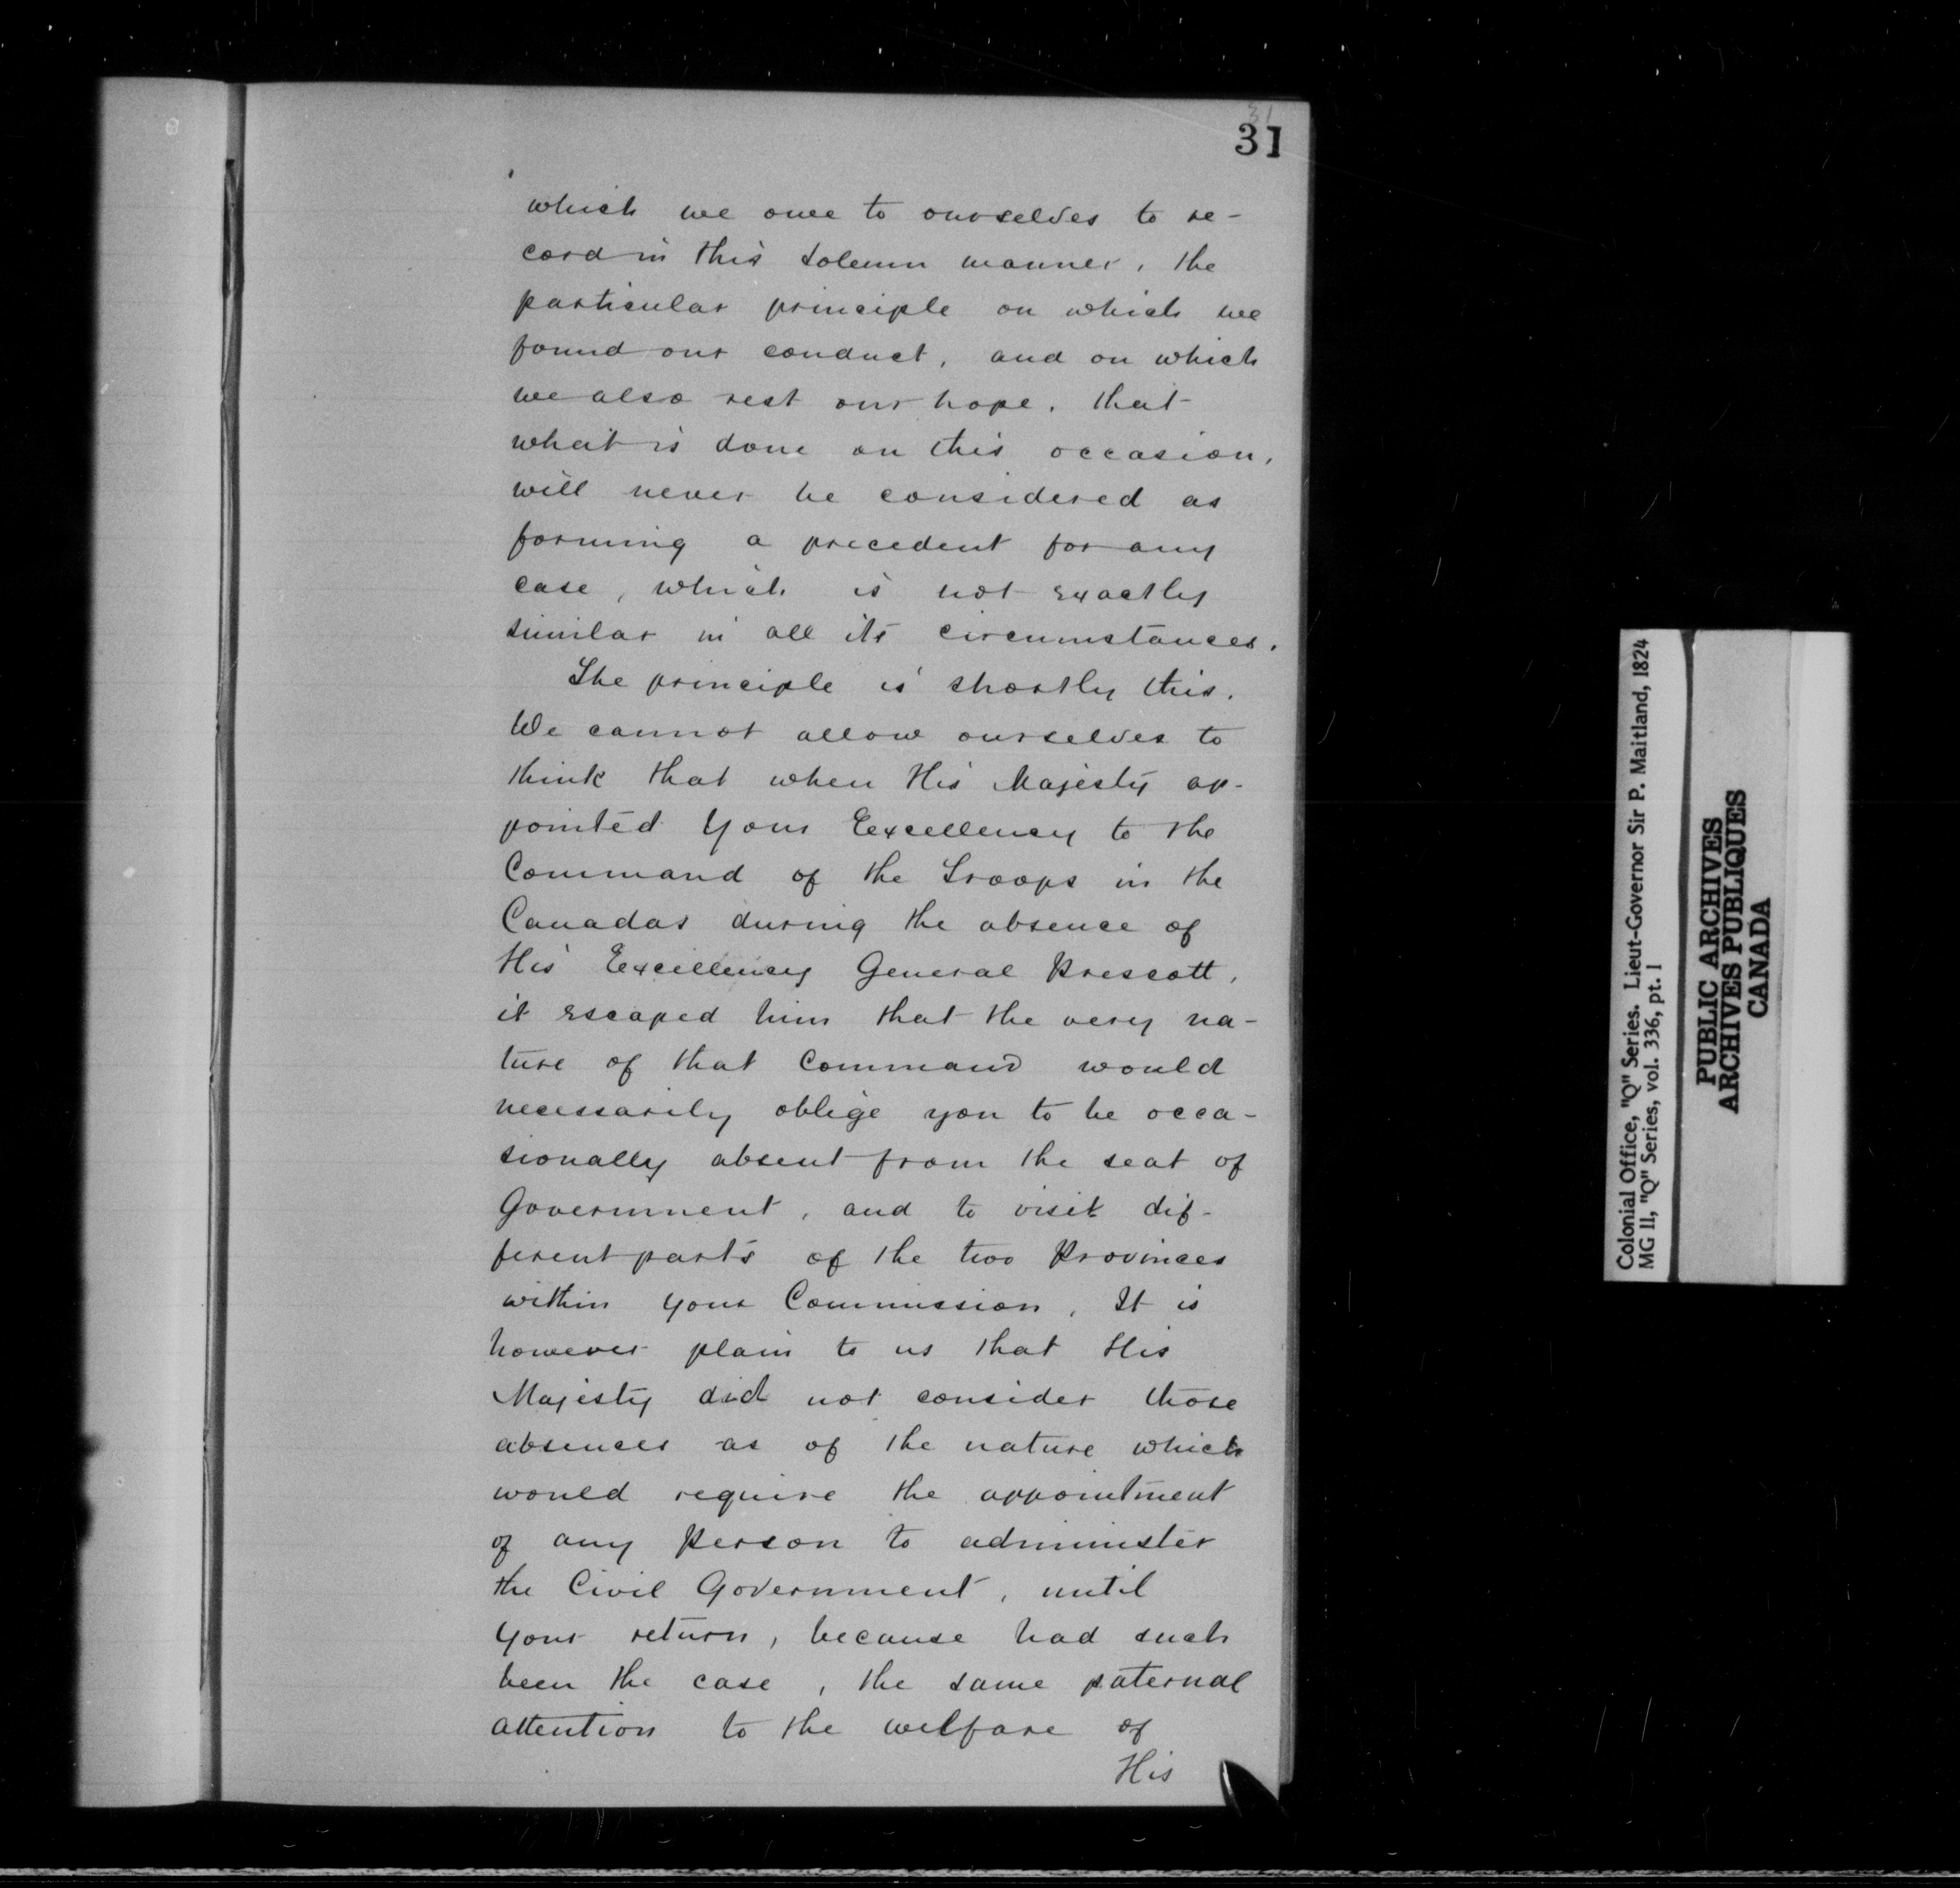 31
31
which we owe to ourselves to re-
cord in this solemn manner, the
particular principle on which we
found our conduct, and on which
we also rest our hope, that
what is done on this occasion,
will never be considered as
forming a precedent for any
case, which is not exactly
similar in all its circumstances.
The principle is shortly this.
We cannot allow ourselves to
think that when His Majesty ap-
pointed Your Excellency to the
Command of the Troops in the
Canadas during the absence of
His Excellency General Prescott,
it escaped him that the very na-
ture of that Command would
necessarily oblige you to be occa-
sionally absent from the seat of
Government, and to visit dif-
ferent parts of the two Provinces
within your Commission. It is
however plain to us that His
Majesty did not consider those
absences as of the nature which
would require the appointment
of any Person to administer
the Civil Government, until
Your return, because had such
been the case, the same paternal
attention to the welfare of
His
Colonial Office, "Q" Series. Lieut-Governor Sir P. Maitland, 1824
MG 11, "Q" Series, vol. 336, pt. 1
PUBLIC ARCHIVES
ARCHIVES PUBLIQUES
CANADA